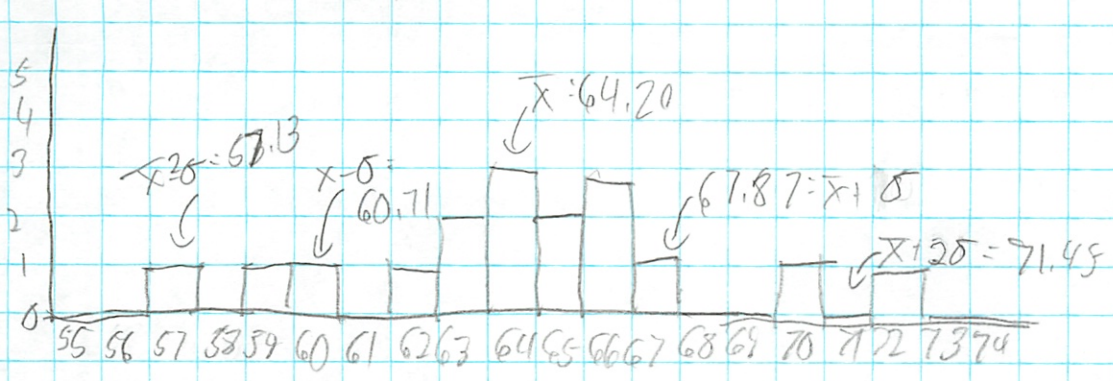 x̄ : 64.20
x̄-2σ = 57.13
x-σ =
60.71
67.87 = x̄ + σ
x̄ + 2σ = 71.45
5
4
3
2
1
0
55 56 57 58 59 60 61 62 63 64 65 66 67 68 69 70 71 72 73 74